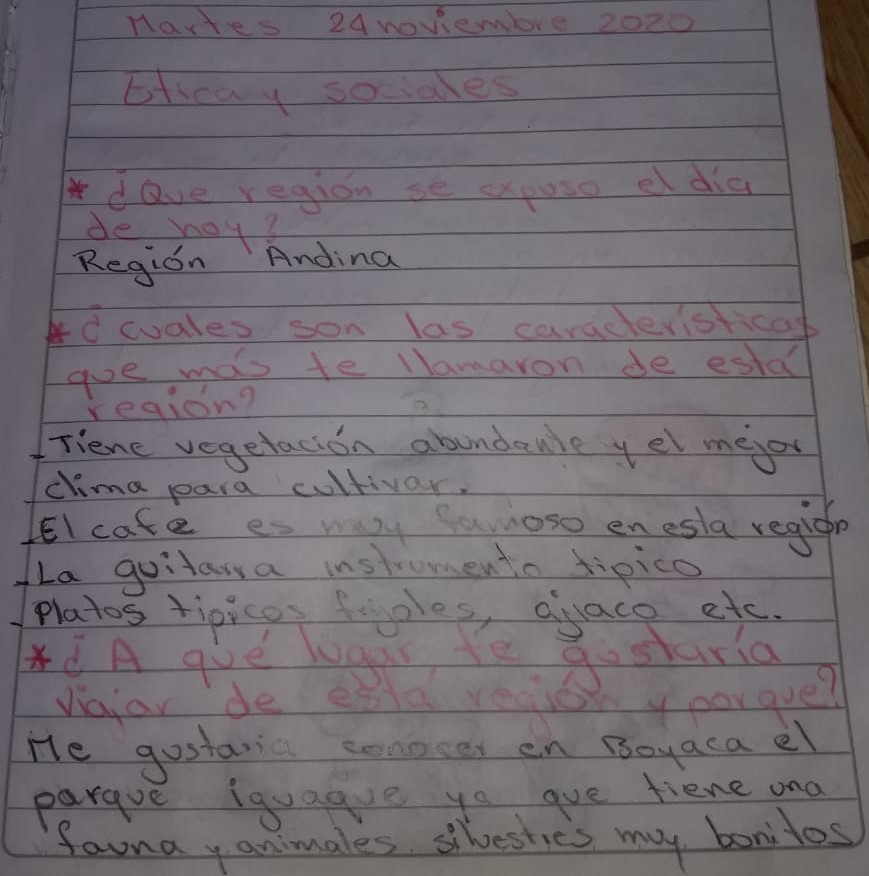 Martes 24 noviembre 2020
Etica y sociales
* ¿Que región se expuso el día
de hoy?
Región Andina
* ¿cuales son las caracteristicas
que más te llamaron de está
región?
- Tiene vegetación abundante y el mejor
clima para cultivar.
- El cafe es muy famoso en esta region
- La guitarra instrumento tipico
- Platos tipicos frijoles, ajiaco etc.
* ¿A qué lugar te gustaría
viajar de está región y por que?
Me gustaria conocer en Boyaca el
parque iguaque ya que tiene una
fauna y animales silvestres muy bonitos